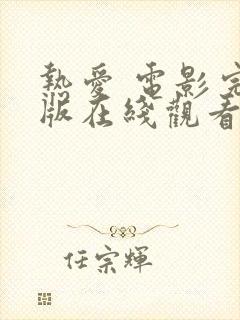 熱愛 電影完
版在綫觀看
任宗輝